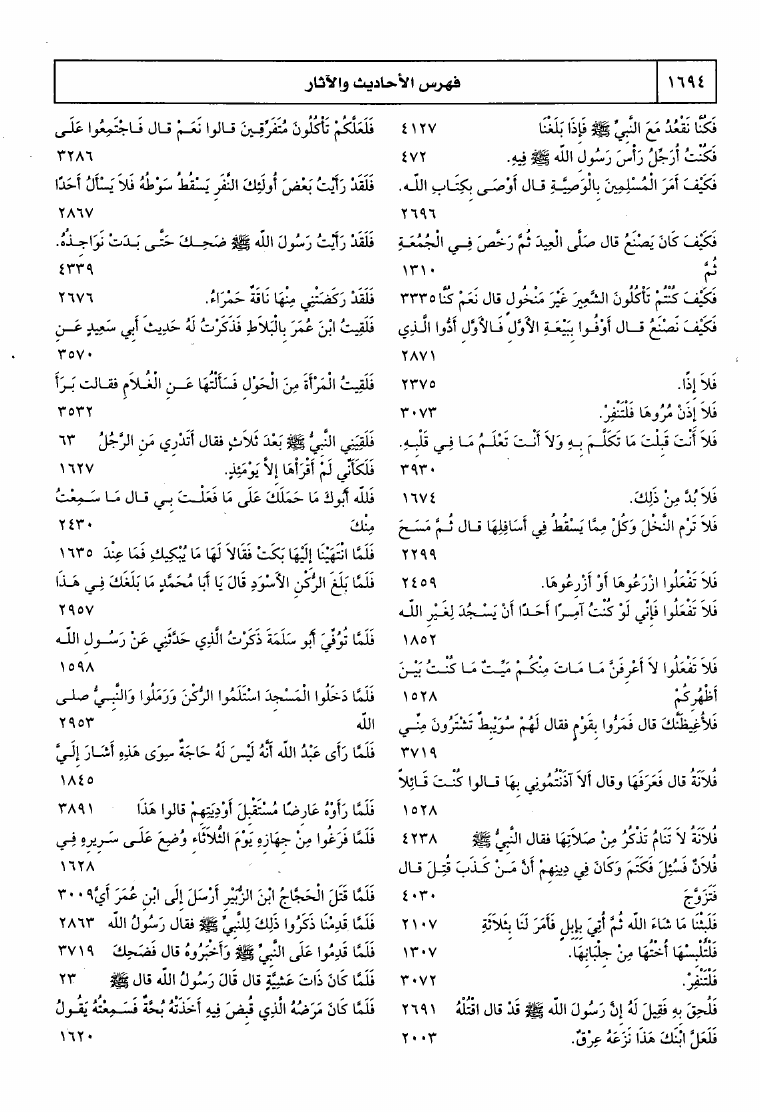 ١٦٩٤
فهرس الأحاديث والآثار
فَكُنَّا نَقْعُدُ مَعَ النَّبِيِّ ﷺ فَإِذَا بَلَغْنَا ٤١٢٧
فَكُنْتُ أُرَجِّلُ رَأْسَ رَسُولِ اللَّه ﷺ فِيهِ. ٤٧٢
فَكَيْفَ أَمَرَ الْمُسْلِمِينَ بِالْوَصِيَّةِ قال أَوْصَى بِكِتَابِ اللَّه.
٢٦٩٦
فَكَيْفَ كَانَ يَصْنَعُ قال صَلَّى الْعِيدَ ثُمَّ رَخَّصَ فِي الْجُمُعَةِ
ثُمَّ ١٣١٠
فَكَيْفَ كُنْتُمْ تَأْكُلُونَ الشَّعِيرَ غَيْرَ مَنْخُولٍ قال نَعَمْ كُنَّا ٣٣٣٥
فَكَيْفَ نَصْنَعُ قال أَوْفُوا بِبَيْعَةِ الأَوَّلِ فَالأَوَّلِ أَدُّوا الَّذِي
٢٨٧١
فَلاَ إِذًا. ٢٣٧٥
فَلاَ إِذَنْ مُرُوهَا فَلْتَنْفِرْ. ٣٠٧٣
فَلاَ أَنْتَ قَبِلْتَ مَا تَكَلَّمَ بِهِ وَلاَ أَنْتَ تَعْلَمُ مَا فِي قَلْبِهِ.
٣٩٣٠
فَلاَ بُدَّ مِنْ ذَلِكَ. ١٦٧٤
فَلاَ تَرْمِ النَّخْلَ وَكُلْ مِمَّا يَسْقُطُ فِي أَسَافِلِهَا قال ثُمَّ مَسَحَ
٢٢٩٩
فَلاَ تَفْعَلُوا ازْرَعُوهَا أَوْ أَزْرِعُوهَا. ٢٤٥٩
فَلاَ تَفْعَلُوا فَإِنِّي لَوْ كُنْتُ آمِرًا أَحَدًا أَنْ يَسْجُدَ لِغَيْرِ اللَّه
١٨٥٢
فَلاَ تَفْعَلُوا لاَ أَعْرِفَنَّ مَا مَاتَ مِنْكُمْ مَيِّتٌ مَا كُنْتُ بَيْنَ
أَظْهُرِكُمْ ١٥٢٨
فَلأُغِيظَنَّكَ قال فَمَرُّوا بِقَوْمٍ فقال لَهُمْ سُوَيْبِطٌ تَشْتَرُونَ مِنِّي
٣٧١٩
فُلاَنَةُ قال فَعَرَفَهَا وقال أَلاَ آذَنْتُمُونِي بِهَا قالوا كُنْتَ قَائِلاً
١٥٢٨
فُلاَنَةُ لاَ تَنَامُ تَذْكُرُ مِنْ صَلاَتِهَا فقال النَّبِيُّ ﷺ ٤٢٣٨
فُلاَنٌ فَسُئِلَ فَكَتَمَ وَكَانَ فِي دِينِهِمْ أَنَّ مَنْ كَذَبَ قُتِلَ قال
فَتَزَوَّجَ ٤٠٣٠
فَلَبِثْنَا مَا شَاءَ اللَّه ثُمَّ أُتِيَ بِإِبِلٍ فَأَمَرَ لَنَا بِثَلاَثَةِ ٢١٠٧
فَلْتُلْبِسْهَا أُخْتُهَا مِنْ جِلْبَابِهَا. ١٣٠٧
فَلْتَنْفِرْ. ٣٠٧٢
فَلُحِقَ بِهِ فَقِيلَ لَهُ إِنَّ رَسُولَ اللَّه ﷺ قَدْ قال اقْتُلْهُ ٢٦٩١
فَلَعَلَّ ابْنَكَ هَذَا نَزَعَهُ عِرْقٌ. ٢٠٠٣
فَلَعَلَّكُمْ تَأْكُلُونَ مُتَفَرِّقِينَ قالوا نَعَمْ قال فَاجْتَمِعُوا عَلَى
٣٢٨٦
فَلَقَدْ رَأَيْتُ بَعْضَ أُولَئِكَ النَّفَرِ يَسْقُطُ سَوْطُهُ فَلاَ يَسْأَلُ أَحَدًا
٢٨٦٧
فَلَقَدْ رَأَيْتُ رَسُولَ اللَّه ﷺ ضَحِكَ حَتَّى بَدَتْ نَوَاجِذُهُ.
٤٣٣٩
فَلَقَدْ رَكَضَتْنِي مِنْهَا نَاقَةٌ حَمْرَاءُ. ٢٦٧٦
فَلَقِيتُ ابْنَ عُمَرَ بِالْبَلاَطِ فَذَكَرْتُ لَهُ حَدِيثَ أَبِي سَعِيدٍ عَنِ
٣٥٧٠
فَلَقِيتُ الْمَرْأَةَ مِنَ الْحَوْلِ فَسَأَلْتُهَا عَنِ الْغُلاَمِ فقالت بَرَأَ
٣٥٣٢
فَلَقِيَنِي النَّبِيُّ ﷺ بَعْدَ ثَلاَثٍ فقال أَتَدْرِي مَنِ الرَّجُلُ ٦٣
فَلَكَأَنِّي لَمْ أَقْرَأْهَا إِلاَّ يَوْمَئِذٍ. ١٦٢٧
فَلِلَّه أَبُوكَ مَا حَمَلَكَ عَلَى مَا فَعَلْتَ بِي قال مَا سَمِعْتُ
مِنْكَ ٢٤٣٠
فَلَمَّا انْتَهَيْنَا إِلَيْهَا بَكَتْ فَقَالاَ لَهَا مَا يُبْكِيكِ فَمَا عِنْدَ ١٦٣٥
فَلَمَّا بَلَغَ الرُّكْنَ الأَسْوَدِ قَالَ يَا أَبَا مُحَمَّدٍ مَا بَلَغَكَ فِي هَذَا
٢٩٥٧
فَلَمَّا تُوُفِّيَ أَبُو سَلَمَةَ ذَكَرْتُ الَّذِي حَدَّثَنِي عَنْ رَسُولِ اللَّه
١٥٩٨
فَلَمَّا دَخَلُوا الْمَسْجِدَ اسْتَلَمُوا الرُّكْنَ وَرَمَلُوا وَالنَّبِيُّ صلى
اللَّه ٢٩٥٣
فَلَمَّا رَأَى عَبْدُ اللَّه أَنَّهُ لَيْسَ لَهُ حَاجَةٌ سِوَى هَذِهِ أَشَارَ إِلَيَّ
١٨٤٥
فَلَمَّا رَأَوْهُ عَارِضًا مُسْتَقْبِلَ أَوْدِيَتِهِمْ قالوا هَذَا ٣٨٩١
فَلَمَّا فَرَغُوا مِنْ جِهَازِهِ يَوْمَ الثُّلاَثَاءِ وُضِعَ عَلَى سَرِيرِهِ فِي
١٦٢٨
فَلَمَّا قَتَلَ الْحَجَّاجُ ابْنَ الزُّبَيْرِ أَرْسَلَ إِلَى ابْنِ عُمَرَ أَيَّ ٣٠٠٩
فَلَمَّا قَدِمْنَا ذَكَرُوا ذَلِكَ لِلنَّبِيِّ ﷺ فقال رَسُولُ اللَّه ٢٨٦٣
فَلَمَّا قَدِمُوا عَلَى النَّبِيِّ ﷺ وَأَخْبَرُوهُ قال فَضَحِكَ ٣٧١٩
فَلَمَّا كَانَ ذَاتَ عَشِيَّةٍ قال قَالَ رَسُولُ اللَّه قال ﷺ ٢٣
فَلَمَّا كَانَ مَرَضُهُ الَّذِي قُبِضَ فِيهِ أَخَذَتْهُ بُحَّةٌ فَسَمِعْتُهُ يَقُولُ
١٦٢٠